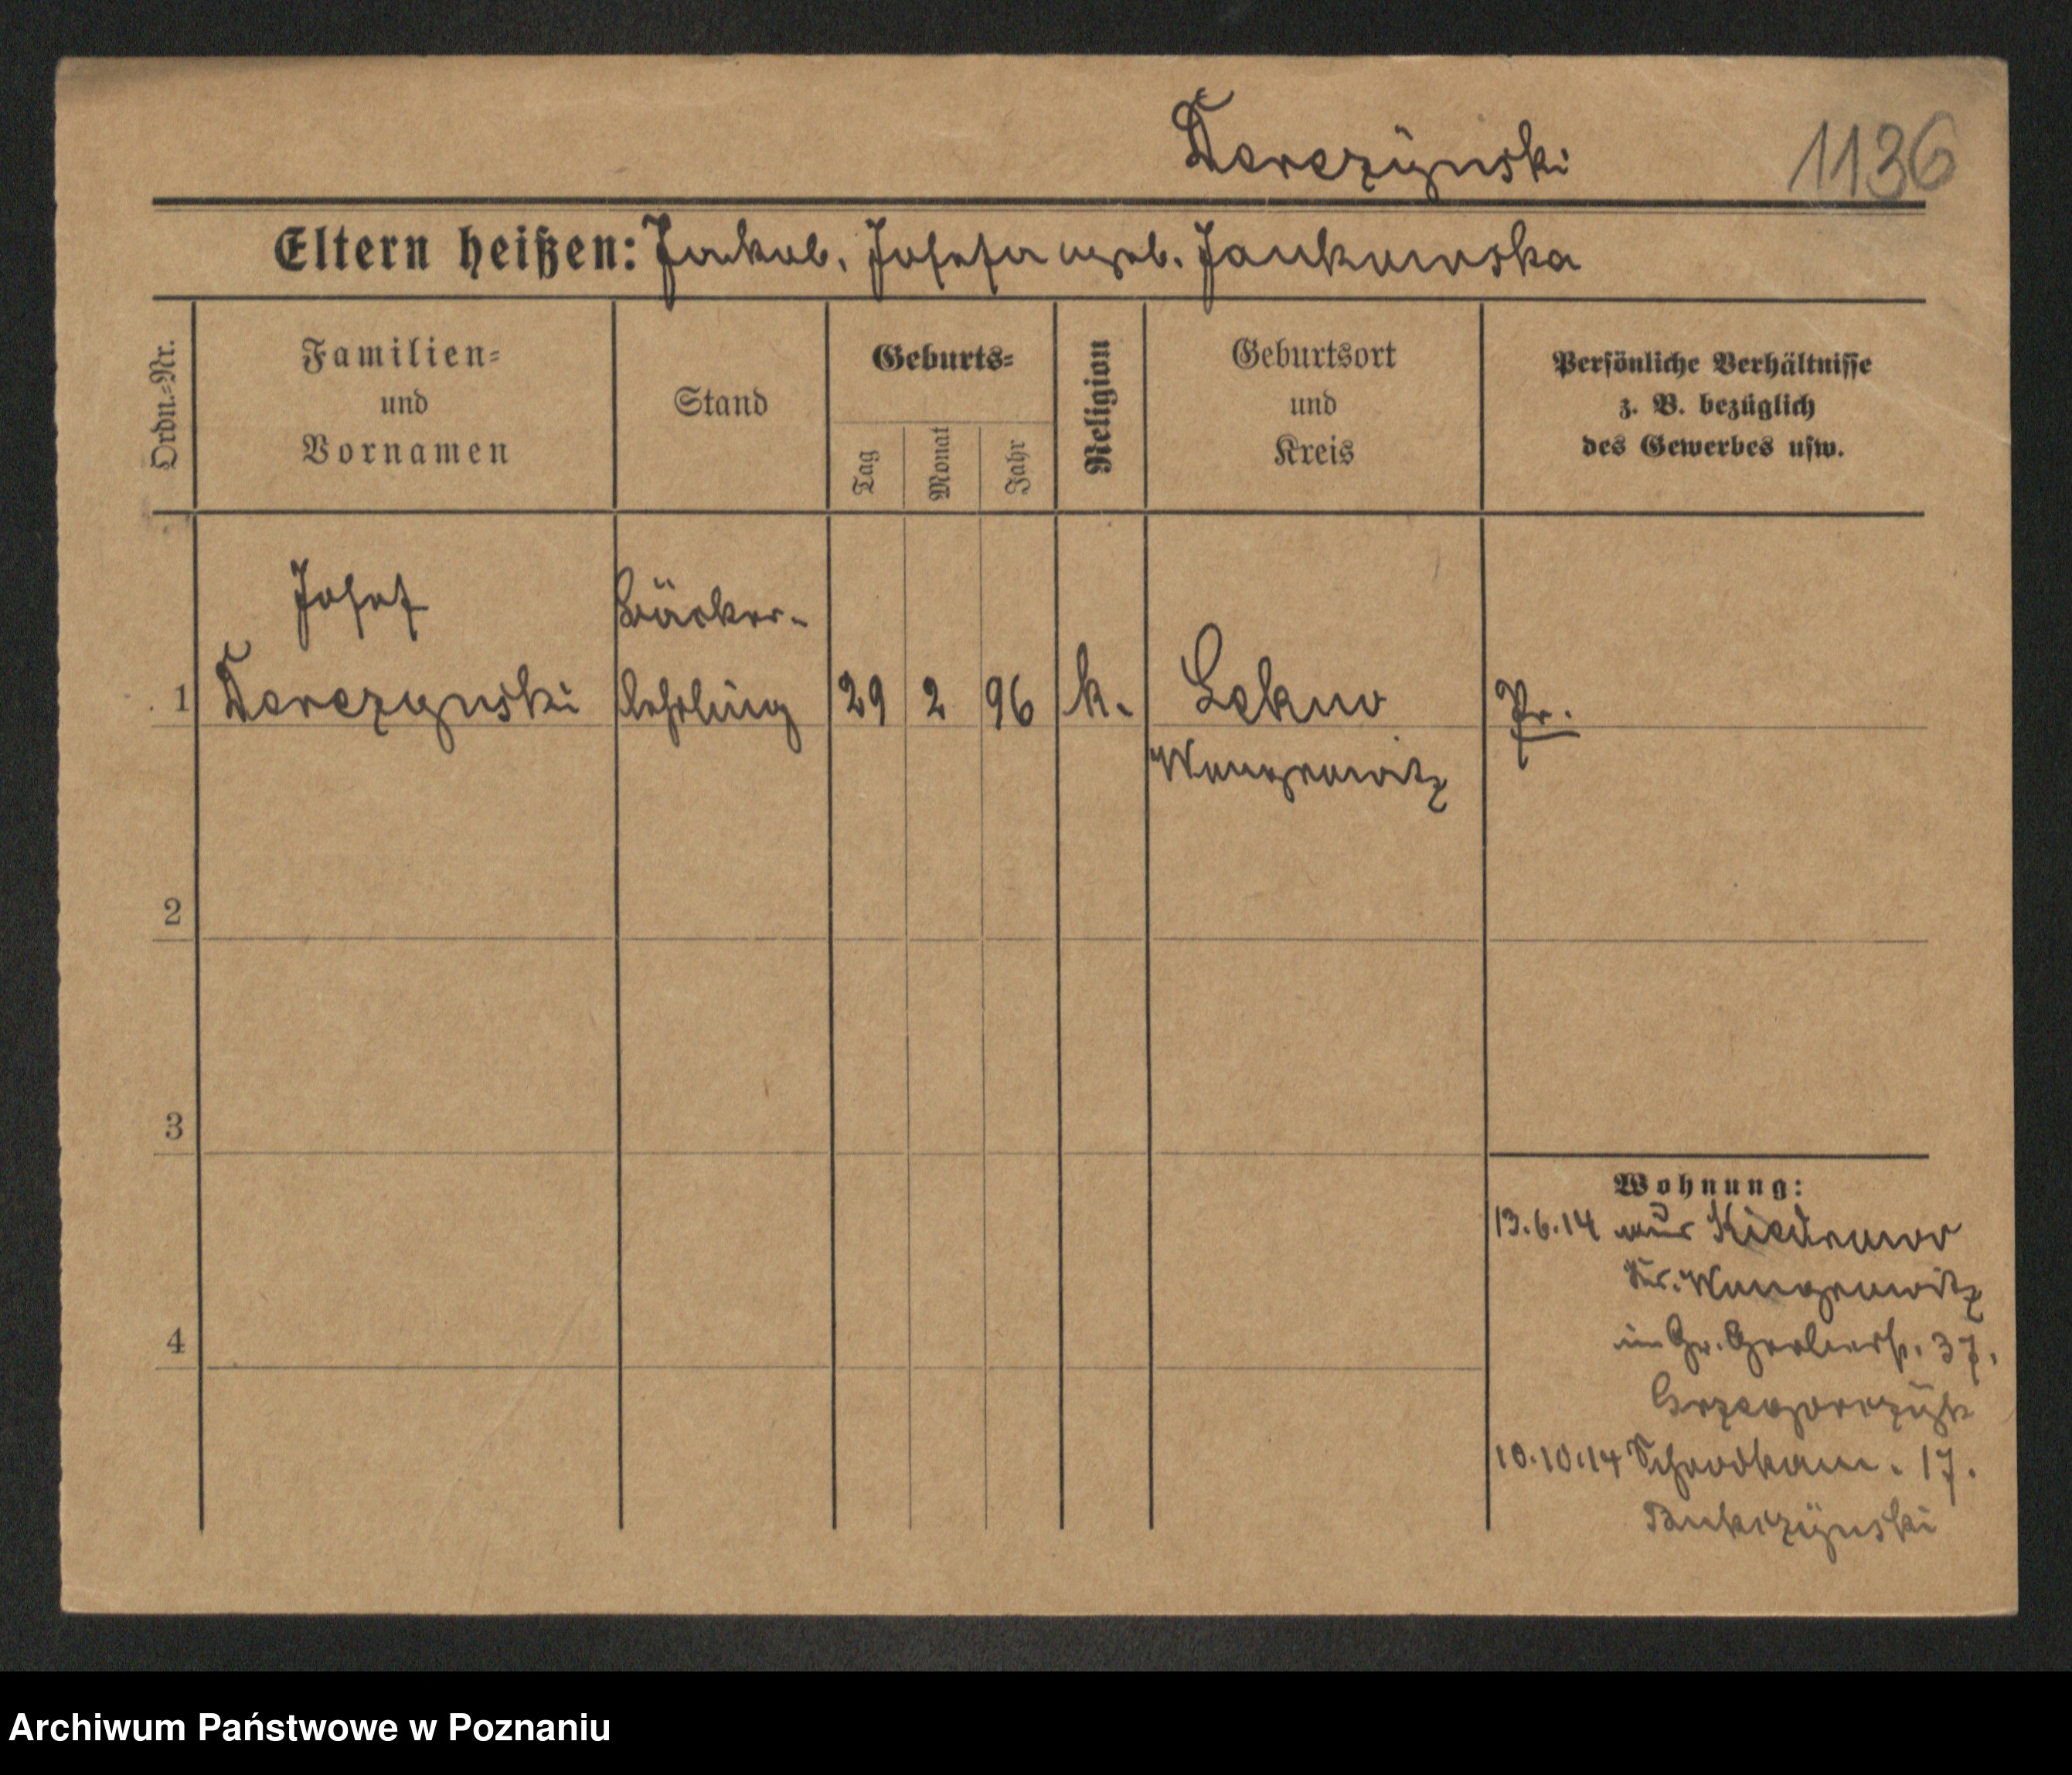 Derczynski
1136
Eltern heißen: Jakob, Josefa geb. Jankowska
Ordn.-Nr.
Familien-
und
Vornamen
Stand
Geburts-
Tag
Monat
Jahr
Religion
Geburtsort
und
Kreis
Persönliche Verhältnisse
z. B. bezüglich
des Gewerbes usw.
Josef Bäcker-
1 Derezynski lehrling 29 2 96 k. Lekno Pr.
Wongrowitz
2
3
4
Wohnung:
13.6.14 aus
Kr. Wongrowitz
in Gr. Gerberst. 37.
10.10.14 17.
Archiwum Państwowe w Poznaniu